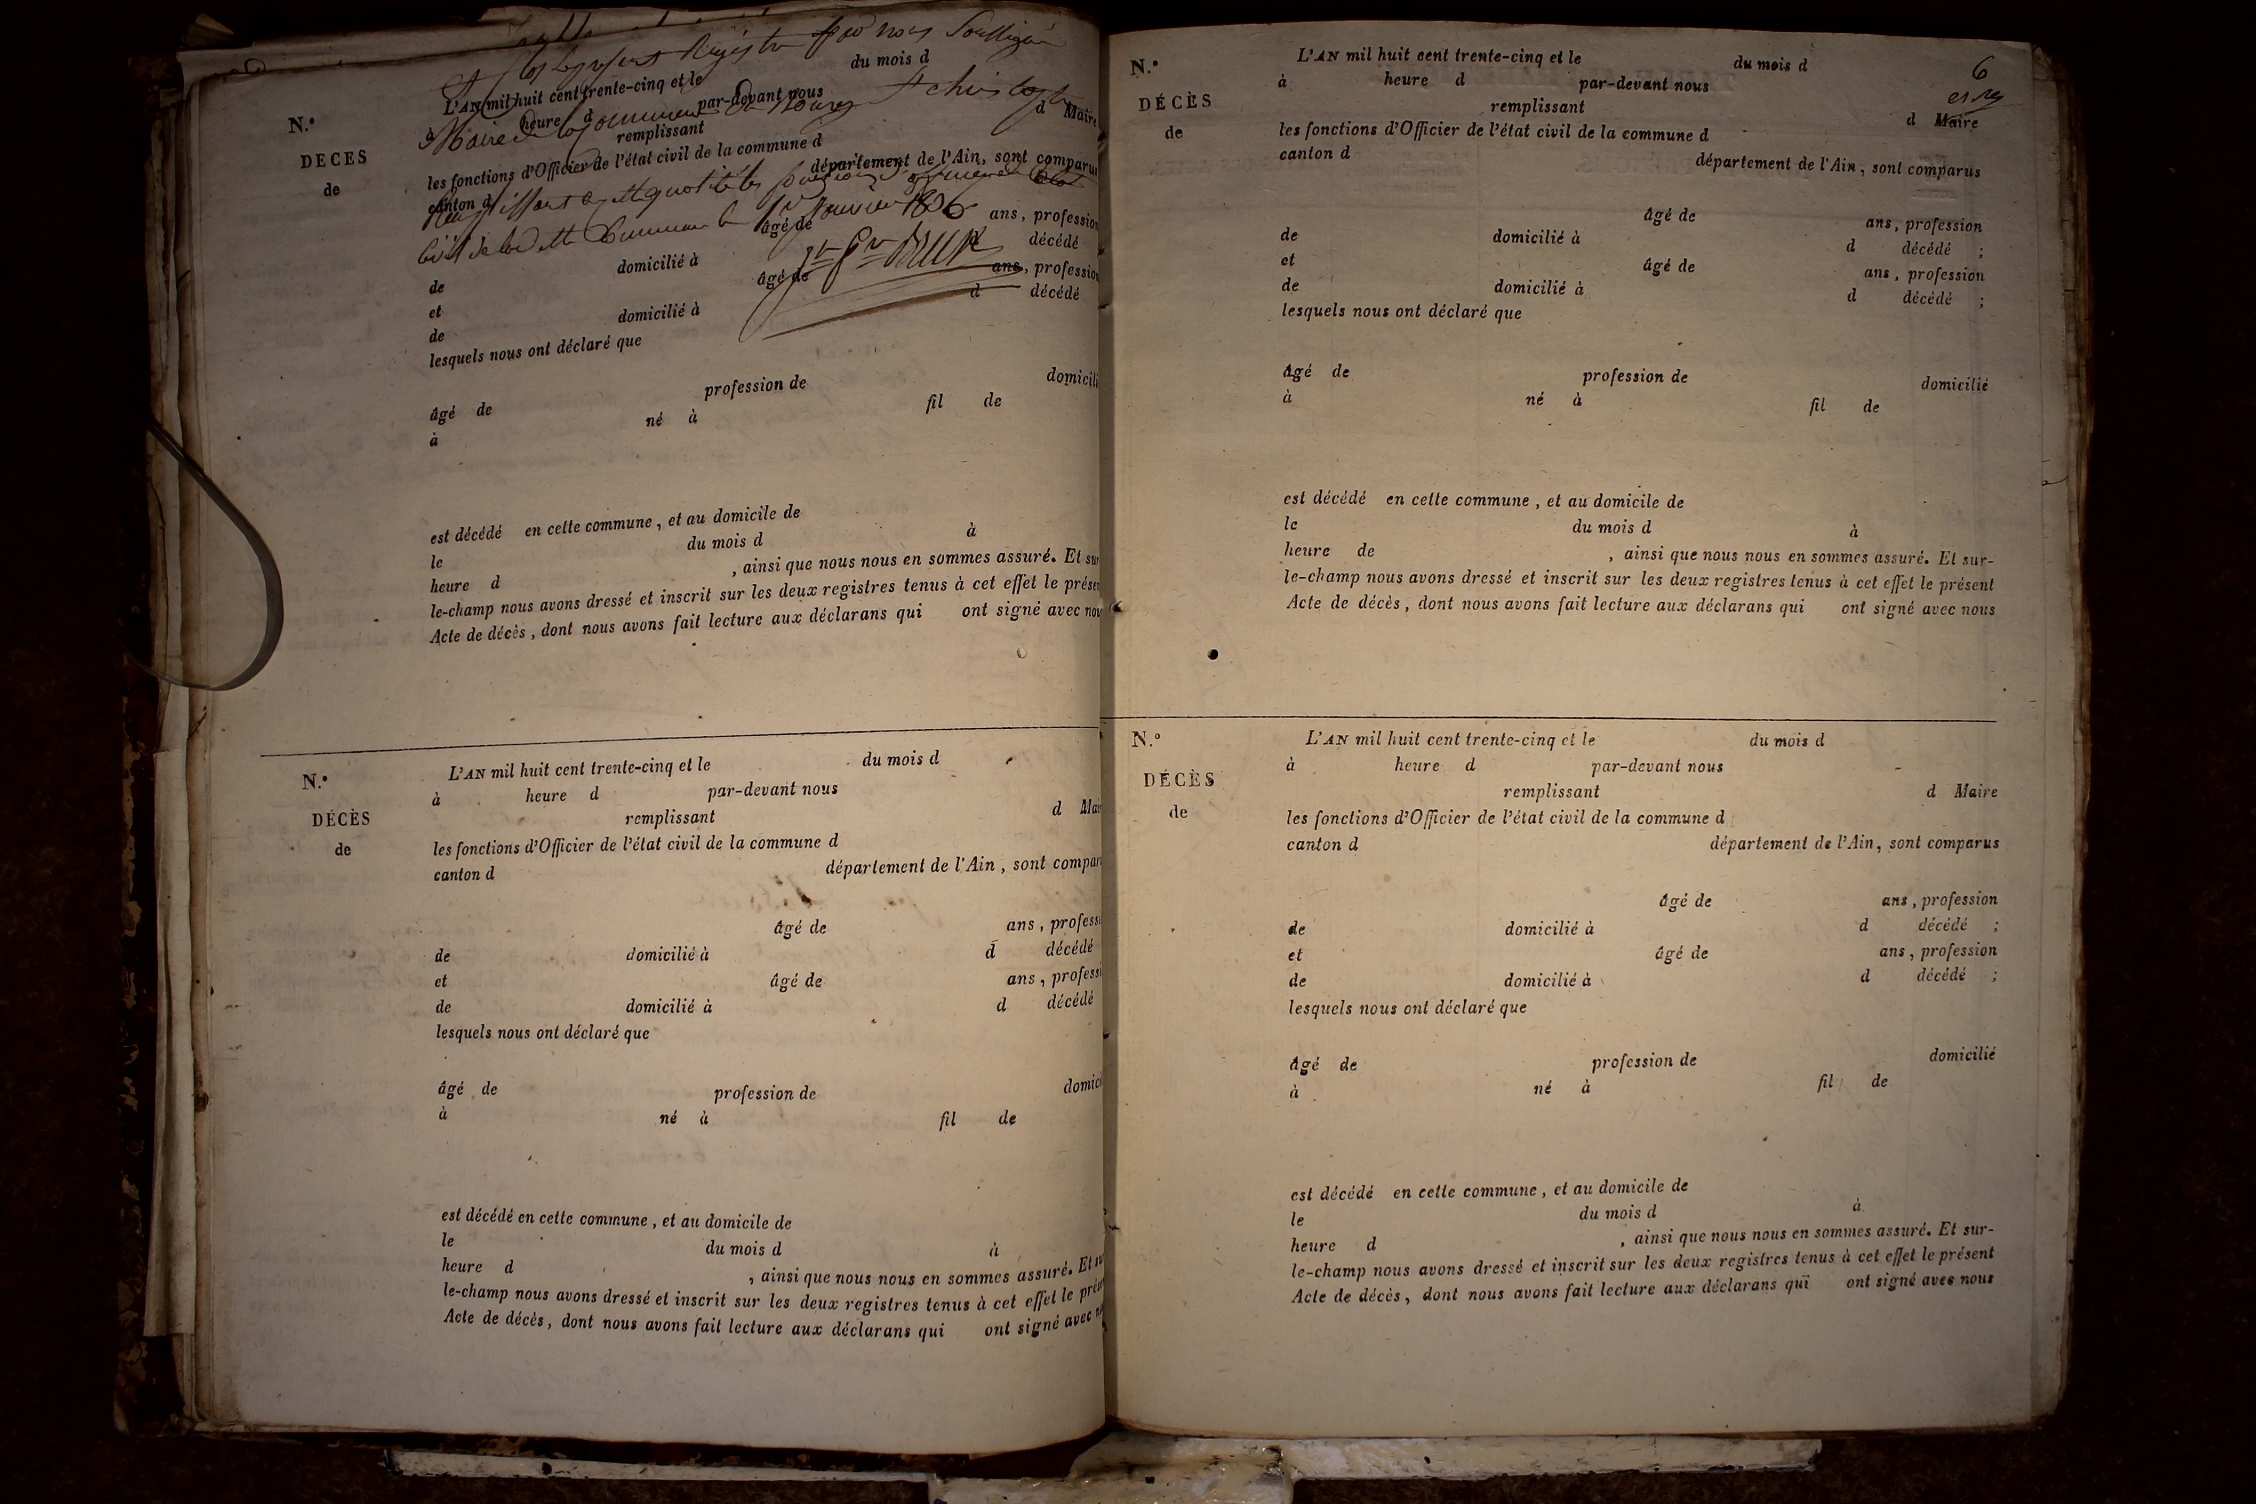 Clos le present Registre par nous Soussigné
Maire de la Commune de
Remplissant en cette qualité les fonctions d'officier de l'état
Civil de la ditte Commune le 1er Janvier 1836
N.º
DÉCÈS
de
L'AN mil huit cent trente-cinq et le du mois d
à heure d par-devant nous
remplissant d Maire
les fonctions d'Officier de l'état civil de la commune d
canton d département de l'Ain, sont comparus
âgé de ans, profession
de domicilié à d décédé
et âgé de ans, profession
de domicilié à d décédé
lesquels nous ont déclaré que
âgé de profession de domicili
à né à fil de
est décédé en cette commune, et au domicile de
le du mois d à
heure d , ainsi que nous nous en sommes assuré. Et sur
le-champ nous avons dressé et inscrit sur les deux registres tenus à cet effet le présen
Acte de décès, dont nous avons fait lecture aux déclarans qui ont signé avec nou
N.º
DÉCÈS
de
L'AN mil huit cent trente-cinq et le du mois d
à heure d par-devant nous
remplissant d Mai
les fonctions d'Officier de l'état civil de la commune d
canton d département de l'Ain, sont compar
âgé de ans, professi
de domicilié à d décédé
et âgé de ans, professi
de domicilié à d décédé
lesquels nous ont déclaré que
âgé de profession de domici
à né à fil de
est décédé en cette commune, et au domicile de
le du mois d à
heure d , ainsi que nous nous en sommes assuré. Et su
le-champ nous avons dressé et inscrit sur les deux registres tenus à cet effet le prése
Acte de décès, dont nous avons fait lecture aux déclarans qui ont signé avec n
6
N.º
DÉCÈS
de
L'AN mil huit cent trente-cinq et le du mois d
à heure d par-devant nous
remplissant d Maire
les fonctions d'Officier de l'état civil de la commune d
canton d département de l'Ain, sont comparus
âgé de ans, profession
de domicilié à d décédé ;
et âgé de ans, profession
de domicilié à d décédé ;
lesquels nous ont déclaré que
âgé de profession de domicilié
à né à fil de
est décédé en cette commune, et au domicile de
le du mois d à
heure de , ainsi que nous nous en sommes assuré. Et sur-
le-champ nous avons dressé et inscrit sur les deux registres tenus à cet effet le présent
Acte de décès, dont nous avons fait lecture aux déclarans qui ont signé avec nous
N.º
DÉCÈS
de
L'AN mil huit cent trente-cinq et le du mois d
à heure d par-devant nous
remplissant d Maire
les fonctions d'Officier de l'état civil de la commune d
canton d département de l'Ain, sont comparus
âgé de ans, profession
de domicilié à d décédé ;
et âgé de ans, profession
de domicilié à d décédé ;
lesquels nous ont déclaré que
âgé de profession de domicilié
à né à fil de
est décédé en cette commune, et au domicile de
le du mois d à
heure d , ainsi que nous nous en sommes assuré. Et sur-
le-champ nous avons dressé et inscrit sur les deux registres tenus à cet effet le présent
Acte de décès, dont nous avons fait lecture aux déclarans qui ont signé avec nous